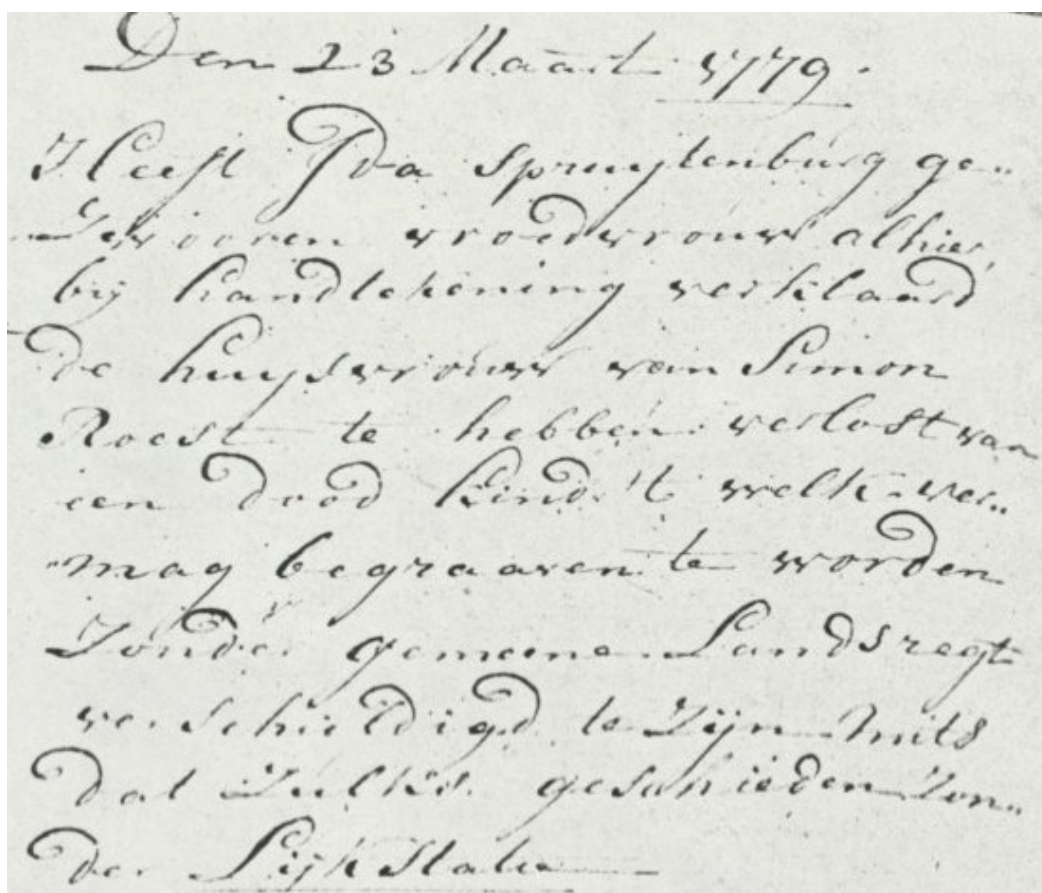 Den 23 Maart 1779.
Heeft Ida Spruijtenburg ge„
„Zwooren vroedvrouw alhier,
bij handtekening verklaard
de huijsvrouw van Simon
Roest te hebben verlost van
een dood kind 't welk ver„
„mag begraaven te worden
Zonder gemeene Landsregt
verschuldigd te Zijn mits
dat Zulks geschieden Zon„
der Lijkstatie